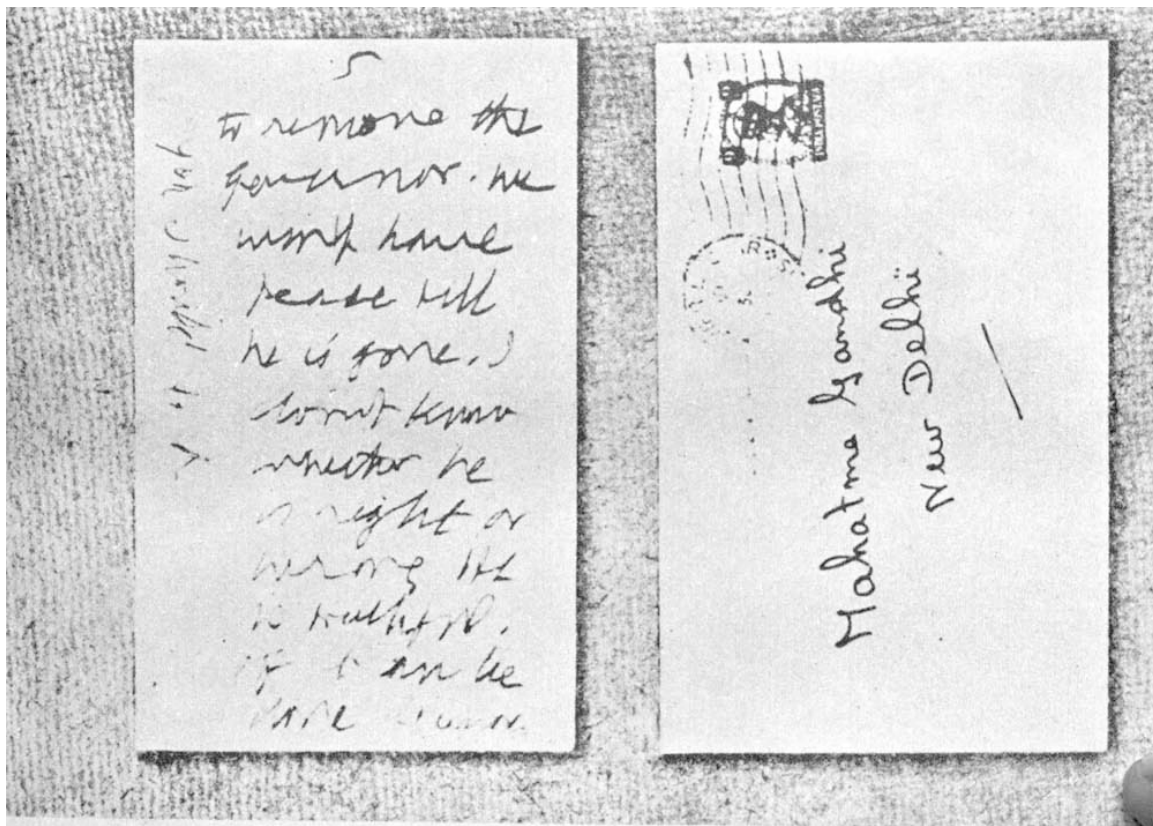 5
to remove the
Governor. We
won't have
peace till
he is gone. I
don't know
whether he
is right or
wrong. He
is truthful.
if
Mahatma Gandhi
New Delhi